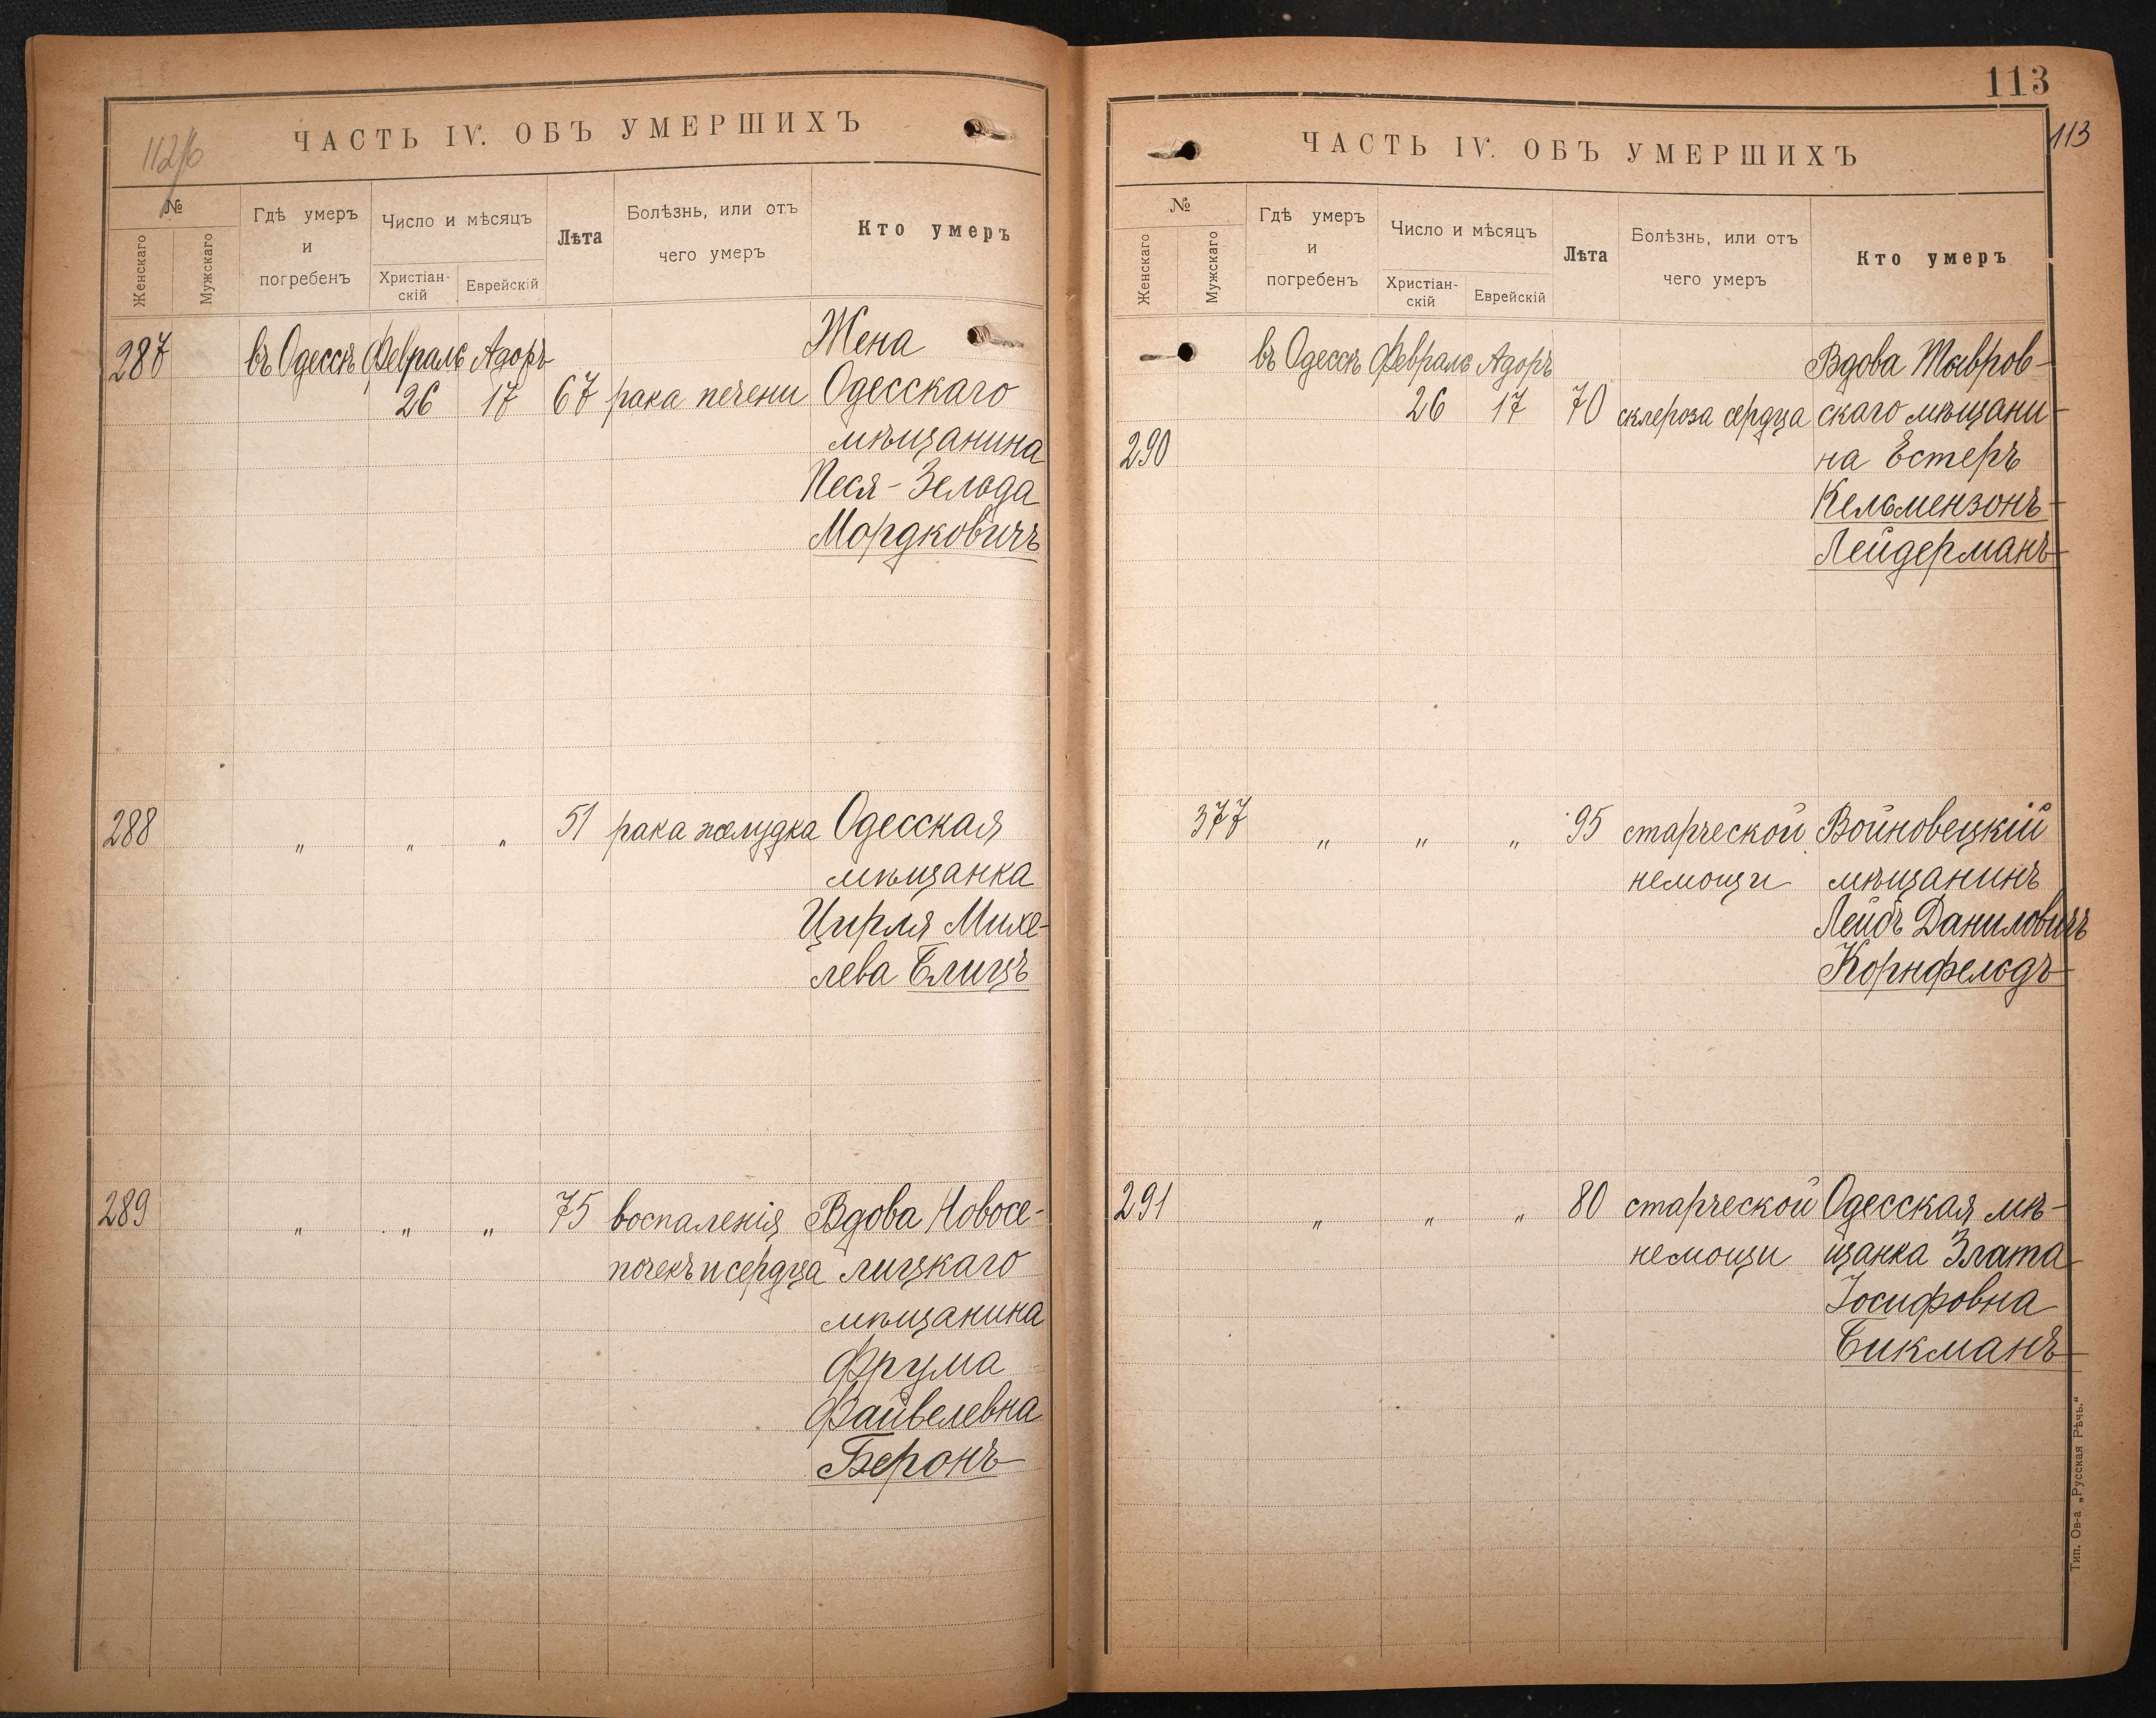 112/б
ЧАСТЬ IV. ОБЪ УМЕРШИХЪ
№
Женскаго
Мужскаго
Гдѣ умеръ
и
погребенъ
Число и мѣсяцъ
Христіан-
скій
Еврейскій
Лѣта
Болѣзнь, или отъ
чего умеръ
Кто умеръ
287 въ Одессѣ Февраль Адоръ Жена
26 17 67 рака печени Одесскаго
мѣщанина
Песя-Зельда
Мордковичъ
288 „ „ „ 51 рака желудка Одесская
мѣщанка
Цирля Михе-
лева Блицъ
289 „ „ „ 75 воспаленія Вдова Новосе-
почекъ и сердца лицкаго
мѣщанина
Фрума
Файвелевна
Беронъ
113
113
ЧАСТЬ IV. ОБЪ УМЕРШИХЪ
№
Женскаго
Мужскаго
Гдѣ умеръ
и
погребенъ
Число и мѣсяцъ
Христіан-
скій
Еврейскій
Лѣта
Болѣзнь, или отъ
чего умеръ
Кто умеръ
въ Одессѣ Февраль Адоръ Вдова
26 17 70 склероза сердца скаго мѣщани-
290 на Естеръ
Кельмензонъ-
Лейдерманъ
377 „ „ „ 95 старческой Войновецкій
немощи мѣщанинъ
Лейбъ Даниловичъ
Корнфельдъ
291 „ „ „ 80 старческой Одесская мѣ-
немощи щанка Злата
Іосифовна
Бикманъ
Тип. Ов-а „Русская Рѣчь."